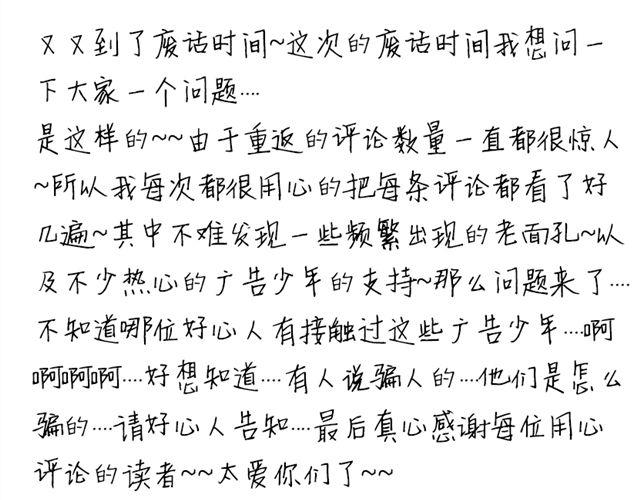 又又到了废话时间~这次的废话时间我想问一
下大家一个问题····
是这样的~~由于重返的评论数量一直都很惊人
~所以我每次都很用心的把每条评论都看了好
几遍~其中不难发现一些频繁出现的老面孔~以
及不少热心的广告少年的支持~那么问题来了····
不知道哪位好心人有接触过这些广告少年····啊
啊啊啊····好想知道····有人说骗人的····他们是怎么
骗的····请好心人告知····最后真心感谢每位用心
评论的读者~~太爱你们了~~